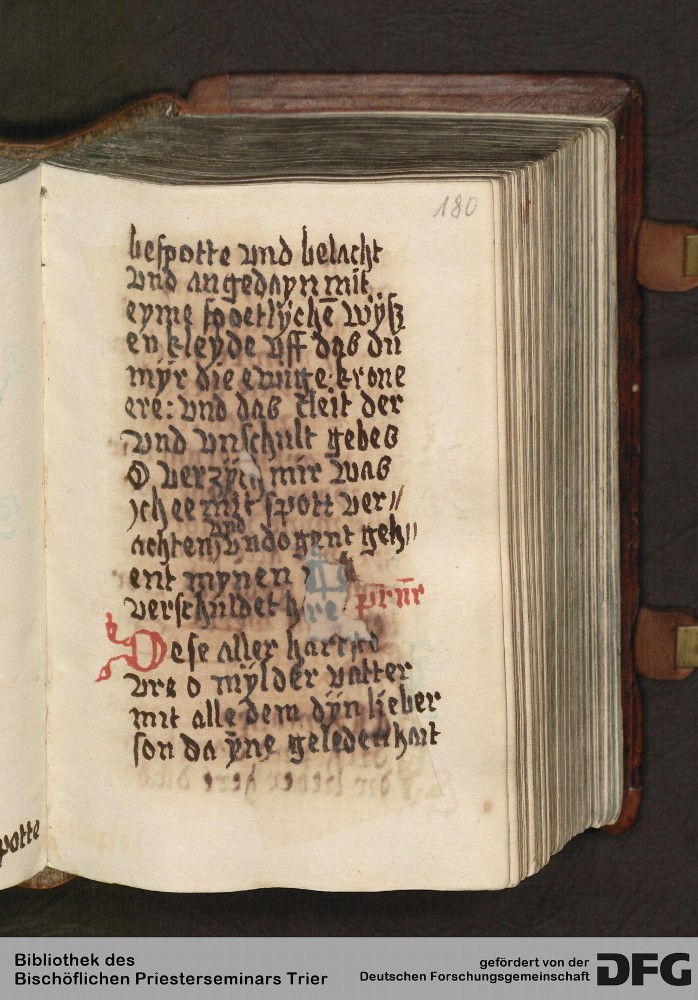 180
bespotte vnd belacht
vnd angedayn mit
eyme spoetlÿchē wÿsz
en kleyde vff das du
mÿr die ewige krone
ere: vnd das cleit der
vnd vnschult gebes
O verzÿ mir was
ich ee mit spott ver//
achten vnd vndogent geh//
ent mynen
verschuldet
Dese aller
vre o mÿlder vatter
mit alle dem dÿn lieber
son da ÿne geleden hait
potte
Bibliothek des
Bischöflichen Priesterseminars Trier
gefördert von der
Deutschen Forschungsgemeinschaft
DFG